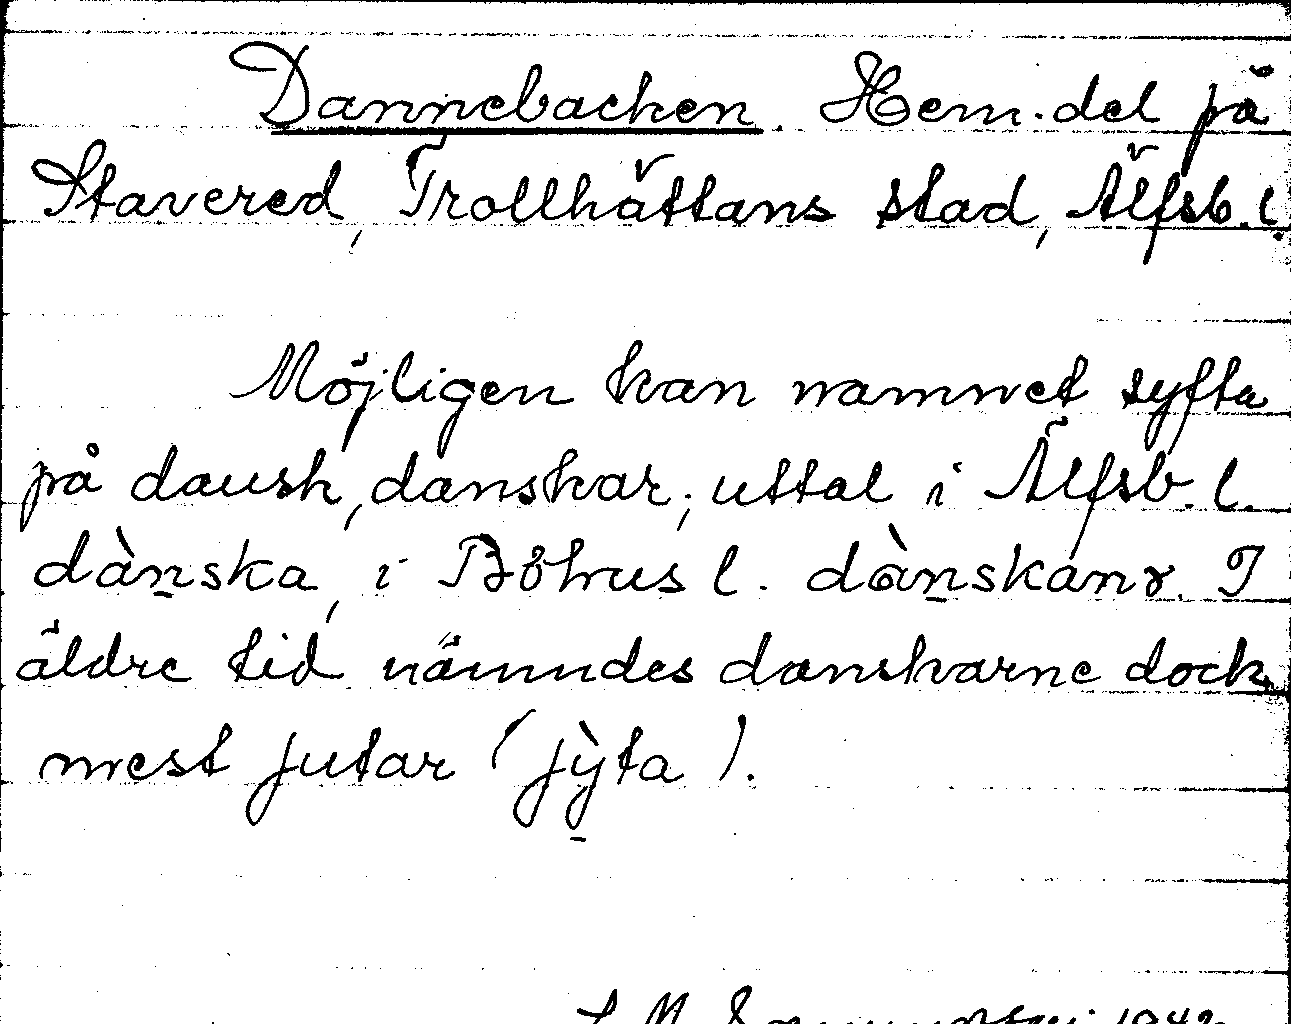 Dannebacken. Hem. del på
Stavered, Trollhättans stad, Älfsb. l.
Möjligen kan namnet syfta
på dansk, danskar; uttal i Älfsb. l.
dànska, i Bohus l. dànskànr. I
äldre tid nämndes danskarne dock
mest jutar (jỳta).
1942